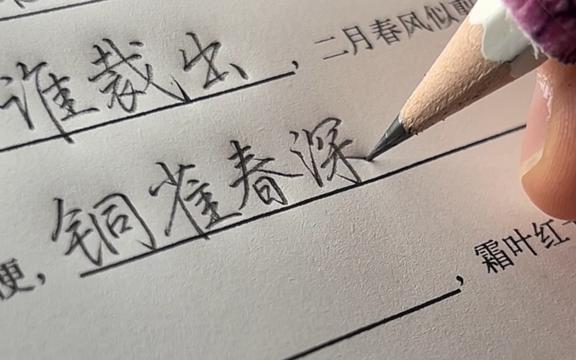 谁裁出，二月春风似
便，铜雀春深
，霜叶红